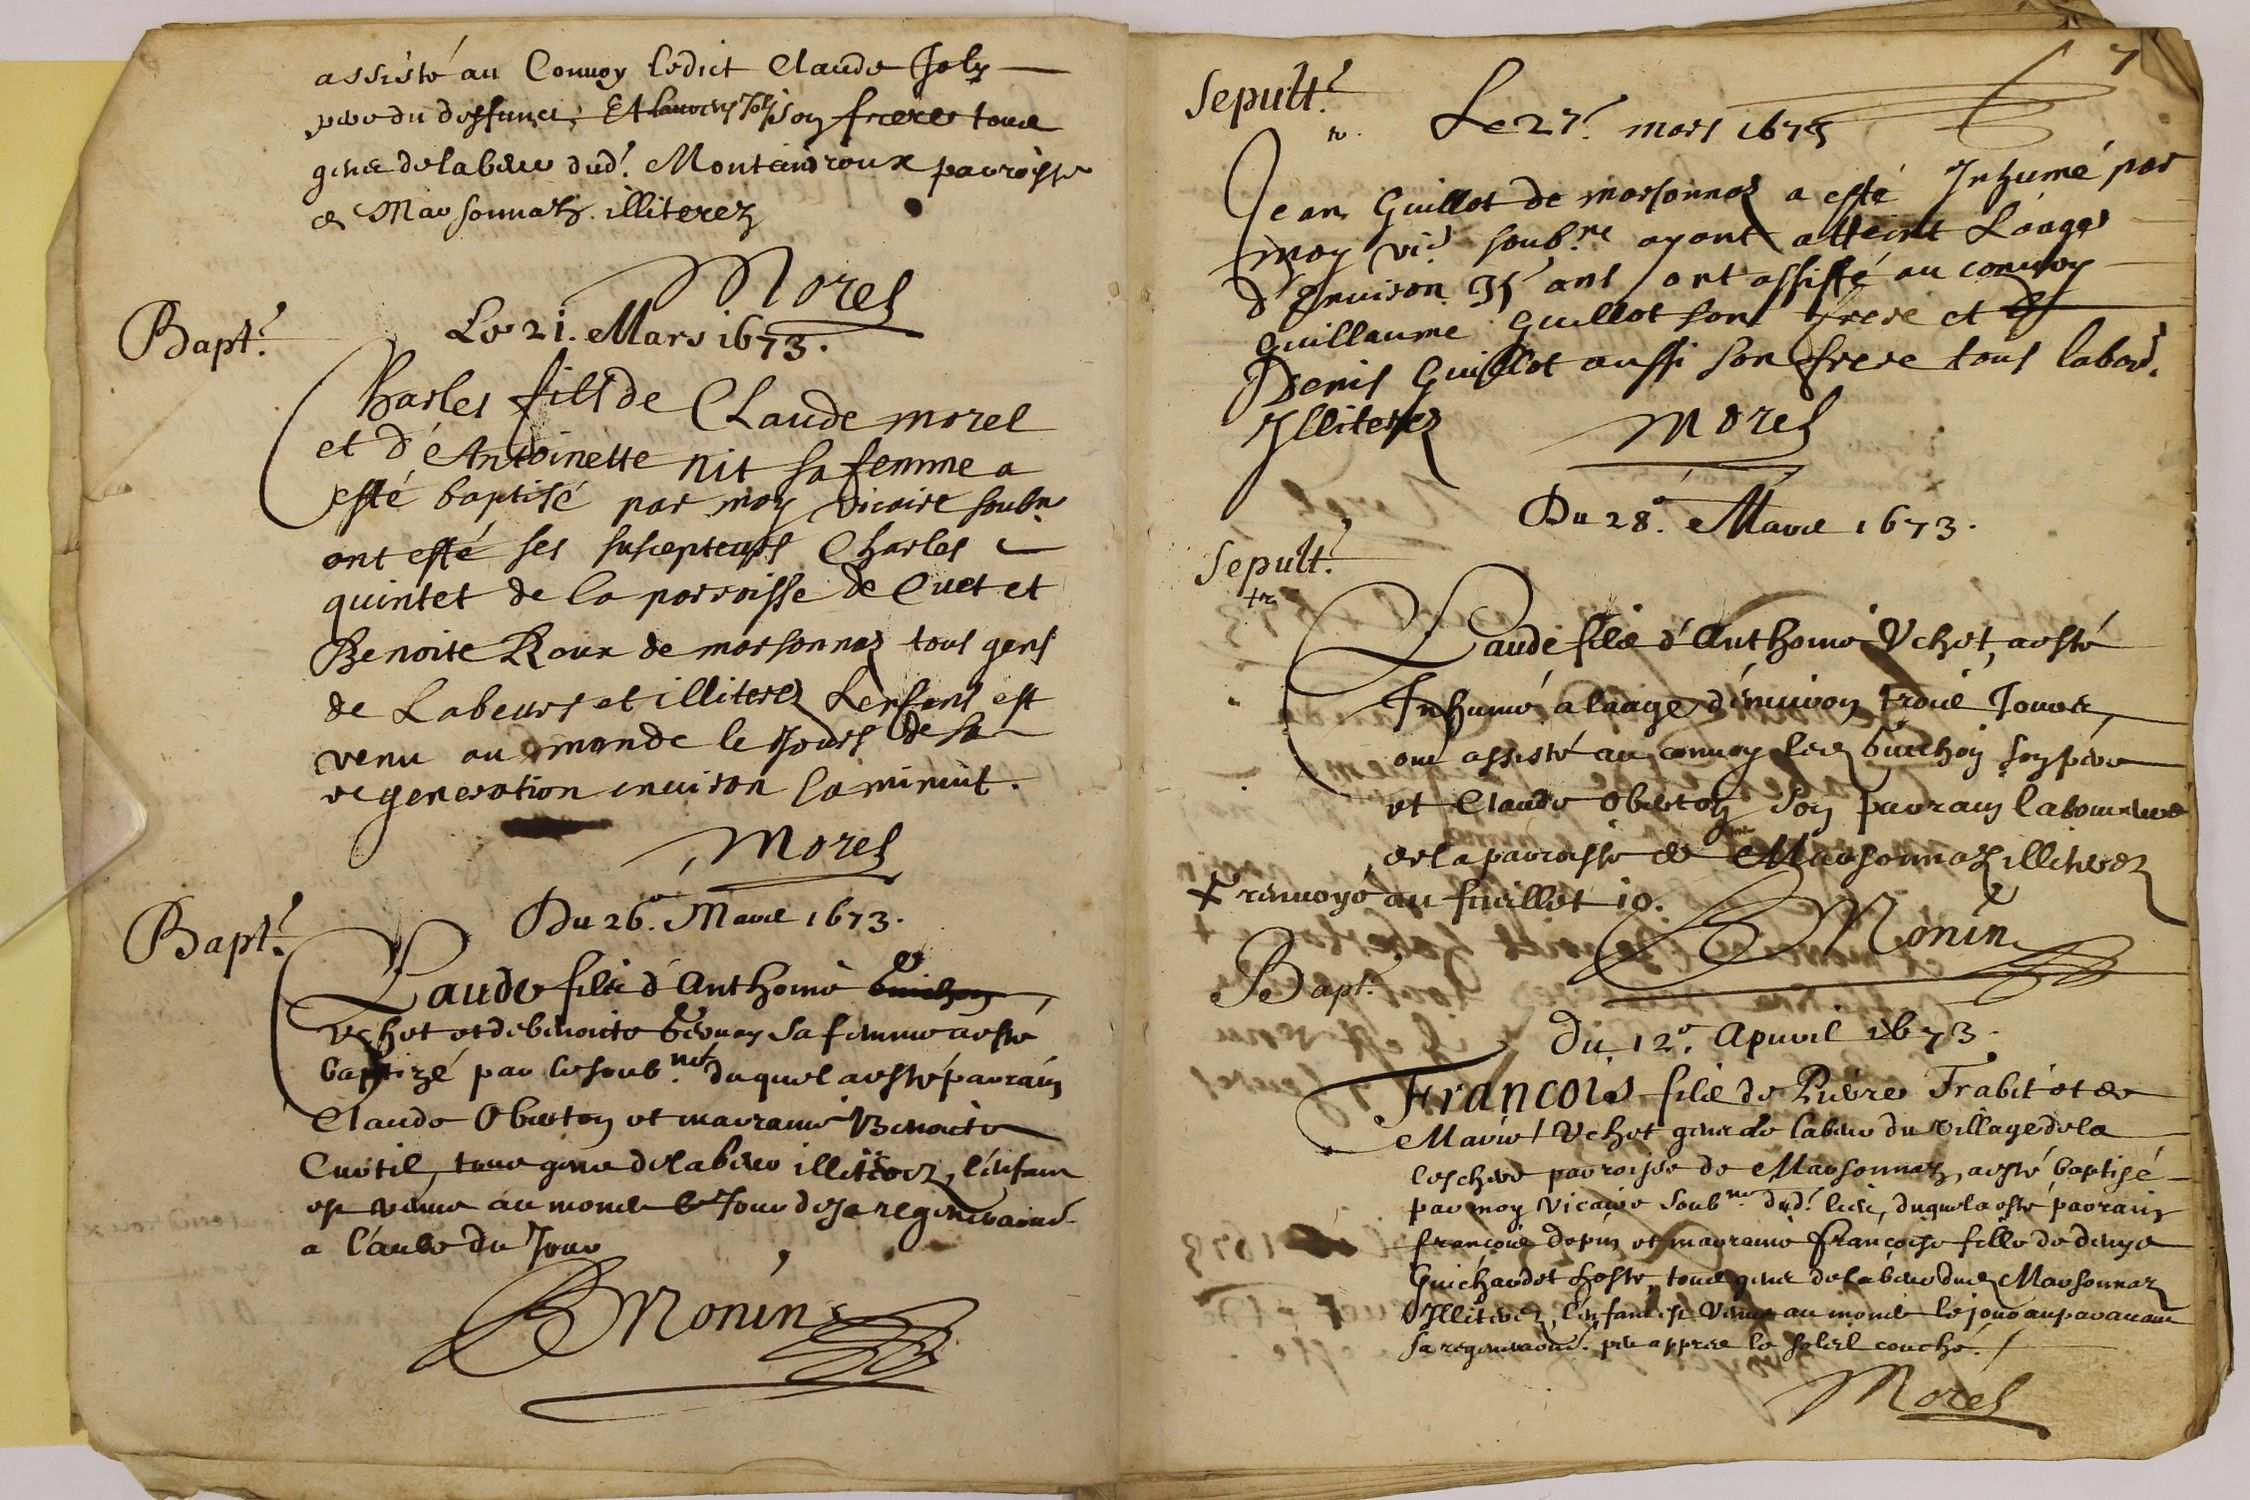 assisté au Convoy ledict Claude Joly
pere du deffunct, Et son frere tous
gens de labeur dud. Montendroux parroisse
de Marsonnas. illiterez
Morel
Bapt.
Le 21. Mars 1673.
Charles fils de Claude morel
et d'Antoinette nit sa femme a
esté baptisé par moy vicaire soubn.
ont esté ses suscepteurs Charles
quintet de la parroisse de Cuet et
Benoite Roux de marsonnas tous gens
de Labeurs et illiterez Lenfant est
venu au monde le Jours de sa
regeneration enuiron la minuit.
Morel
Bapt.
Du 26.e Mars 1673.
Claude fils d'Anthoine
Vchet et de benoite sa femme a esté
baptizé par le soub.né duquel a esté parrain
Claude Oberton et marraine Benoite
Cutil, tous gens de labeur illiterez, l'enfant
est venu au monde le Jour de sa regeneraon.
a l'aube du Jour
Monin
7
Sepult.
Le 27. mars 1673
Jean Guillot de marsonnas a esté Inhumé par
moy vic. soub.né ayant atteint L'aage
d'Enuiron 35 ans ont assisté au conuoy
Guillaume Guillot son frere et
Denis Guillot aussi son frere tous labour.
Illiterez
Morel
Du 28.e Mars 1673.
Sepult.
Claude fils d'Anthoine Vchet, a esté
Inhumé a l'aage d'enuiron trois Jours,
ont assisté au conuoy led. son pere
et Claude Oberton son parrain laboureurs
de la parroisse de Marsonnas illiterez
+ renuoyé au fueillet 10.
Monin
Bapt.
Du 12.e Apuril 1673.
Francois fils de Pierre Trabit et de
Marie Vchet gens de labeur du village de la
leschere parroisse de Marsonnas, a esté baptisé
par moy Vicaire soub.né dud. lieu, duquel a esté parrain
françois dupin et marraine françoise fille de denys
Guichardet hoste, tous gens de labeur dud. Marsonnas
Illiterez, l'enfant est venu au monde le jour auparauant
sa regeneraon. peu apprès le soleil couché.
Morel